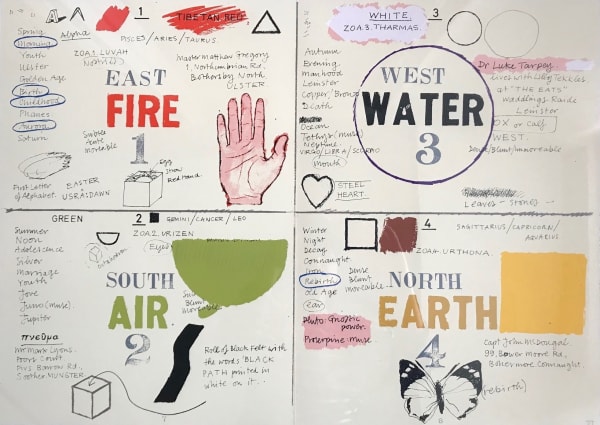 1
TIBETAN RED
PISCES/ARIES/TAURUS.
Spring
Morning
Youth
Ulster
Golden Age
Birth
Childhood
Phanes
Aurora
Saturn
Alpha
ZOA.1. LUVAH
EAST
FIRE
1
Master Matthew Gregory
1, Northumbrian Rd,
North
ULSTER
Moveable
Egg
Straw
Red Hand
First Letter
of Alphabet.
EASTER
USRA:DAWN
WHITE.
ZOA.3. THARMAS.
3
Autumn
Evening
Manhood
Leinster
Copper/Bronze
Death
Ocean
Tethys (muse)
Neptune
VIRGO/LIBRA/SCORPIO
mouth)
WEST
WATER
3
Dr Luke Tarpey
lives with
at "THE EATS"
Leinster
OX or Calf
WEST.
Dense/Blunt/Immoveable
STEEL
HEART.
Leaves - Stones
GREEN
2
GEMINI/CANCER/LEO
ZOA2. URIZEN
(Eyes)
Summer
Noon
Adolescence
Silver
Marriage
Youth
Jove
Juno (muse)
Jupiter
πνεῦμα
Mr Mark Lyons.
Poor Court
Dirs Barrow Rd,
MUNSTER
SOUTH
AIR
2
Blunt
moveable
Roll of Black Felt with
the words 'BLACK
PATH printed in
white on it..
4
SAGITTARIUS/CAPRICORN/
AQUARIUS
ZOA4. URTHONA.
Winter
Night
Decay
Connaught
Iron
Rebirth
Old Age
(ear)
Dense
Blunt
moveable.
Pluto. Gnostic
power.
Proserpine:muse.
NORTH
EARTH
4
Capt John McDougal
99, Bower Moore Rd,
Connaught.
(rebirth)